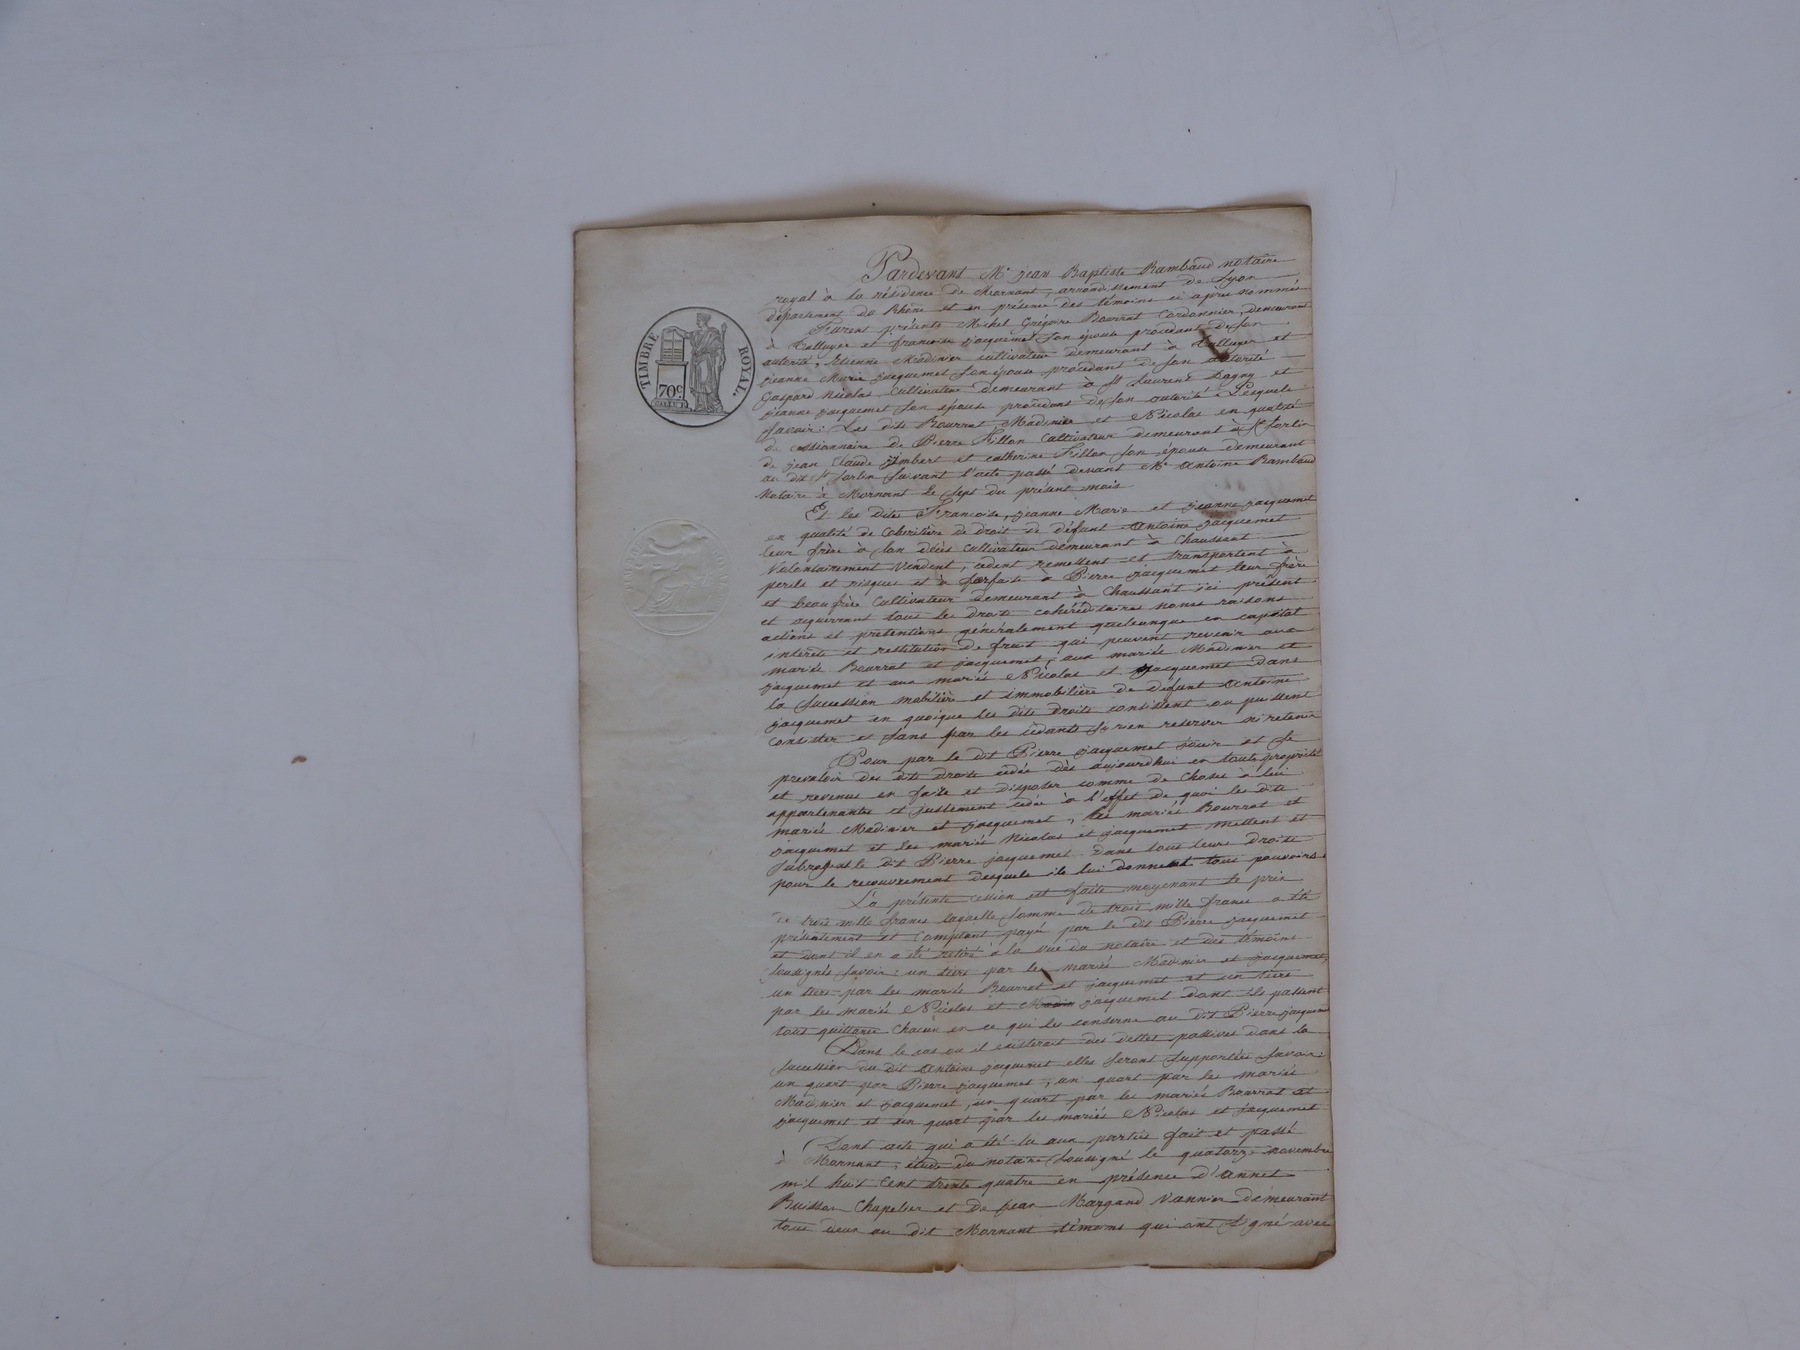 TIMBRE ROYAL.
70c
Pardevant Me jean Baptiste Rambaud notaire
royal à la résidence de Mornant, arrondissement de Lyon
département du Rhône et en présence des témoins ci après nommés
Furent présents Michel Grégoire Bourrat Cordonnier, demeurant
à Talluyer et francoise jacquemet son épouse procedant de son
autorité, Etienne Madinier cultivateur demeurant à Talluyer et
jeanne Marie jacquemet son épouse procedant de son autorité
Gaspard Nicolas Cultivateur demeurant à St Laurent Dagny et
jeanne jacquemet son épouse procedant de son autorité Lesquels
savoir: Les dits Bourrat, Madinier et Nicolas en qualité
de cessionnaire de Pierre Fillon Cultivateur demeurant à St Sorlin
de jean Claude jmbert et catherine Fillon son épouse demeurant
au dit St Sorlin suivant l'acte passé devant Me Antoine Rambaud
Notaire à Mornant le sept du présent mois
Et les dites Francoise, jeanne Marie et jeanne jacquemet
en qualité de Coheritière de droit de défunt Antoine jacquemet
leur frère à son décès Cultivateur demeurant à Chaussant
Volontairement Vendent, cedent remettent et transportent à
perils et risques et à forfaits à Pierre jacquemet leur frère
et beaufrère Cultivateur demeurant à Chaussant ici présent
et acquerrant tous les droits cohéréditaires noms raisons
actions et pretentions généralement quelconque en capital
interets et restitution de fruit qui peuvent revenir aux
mariés Bourrat et jacquemet, aux mariés Madinier et
jacquemet et aux mariés Nicolas et jacquemet dans
la succession mobilière et immobilière de défunt Antoine
jacquemet en quoique les dits droits consistent ou puissent
consister et sans par les cédants s'y rien reserver ni retenir
Pour par le dit Pierre jacquemet jouir et se
prevaloir des dits droits cédés dès aujourd'hui en toute propriété
et revenus en faire et disposer comme de choses à lui
appartenantes et justement cédés à l'effet de quoi les dits
mariés Madinier et jacquemet, les mariés Bourrat et
jacquemet et les mariés Nicolas et jacquemet mettent et
subrogent le dit Pierre jacquemet dans tous leurs droits
pour le recouvrement desquels ils lui donnent tous pouvoirs
La présente cession est faite moyenant le prix
de trois mille francs laquelle somme de trois mille francs a été
présentement et comptant payée par le dit Pierre jacquemet
et dont il en a été retiré à la vue du notaire et des témoins
soussignés savoir: un tiers par les mariés Madinier et jacquemet,
un tiers par les mariés Bourrat et jacquemet et un tiers
par les mariés Nicolas et jacquemet dont ils passent
tous quittance chacun en ce qui les conserne au dit Pierre jacquemet
Dans le cas ou il existerait des dettes passives dans la
succession du dit Antoine jacquemet elles seront supportées savoir:
un quart par Pierre jacquemet, un quart par les mariés
Madinier et jacquemet, un quart par les mariés Bourrat et
jacquemet et un quart par les mariés Nicolas et jacquemet
Dont acte qui a été lu aux parties fait et passé
à Mornant, étude du notaire soussigné le quatorze novembre
mil huit cent trente quatre en présence d'Annet
Buisson Chapelier et De jean Margand Vannier demeurant
tous deux au dit Mornant témoins qui ont signé avec